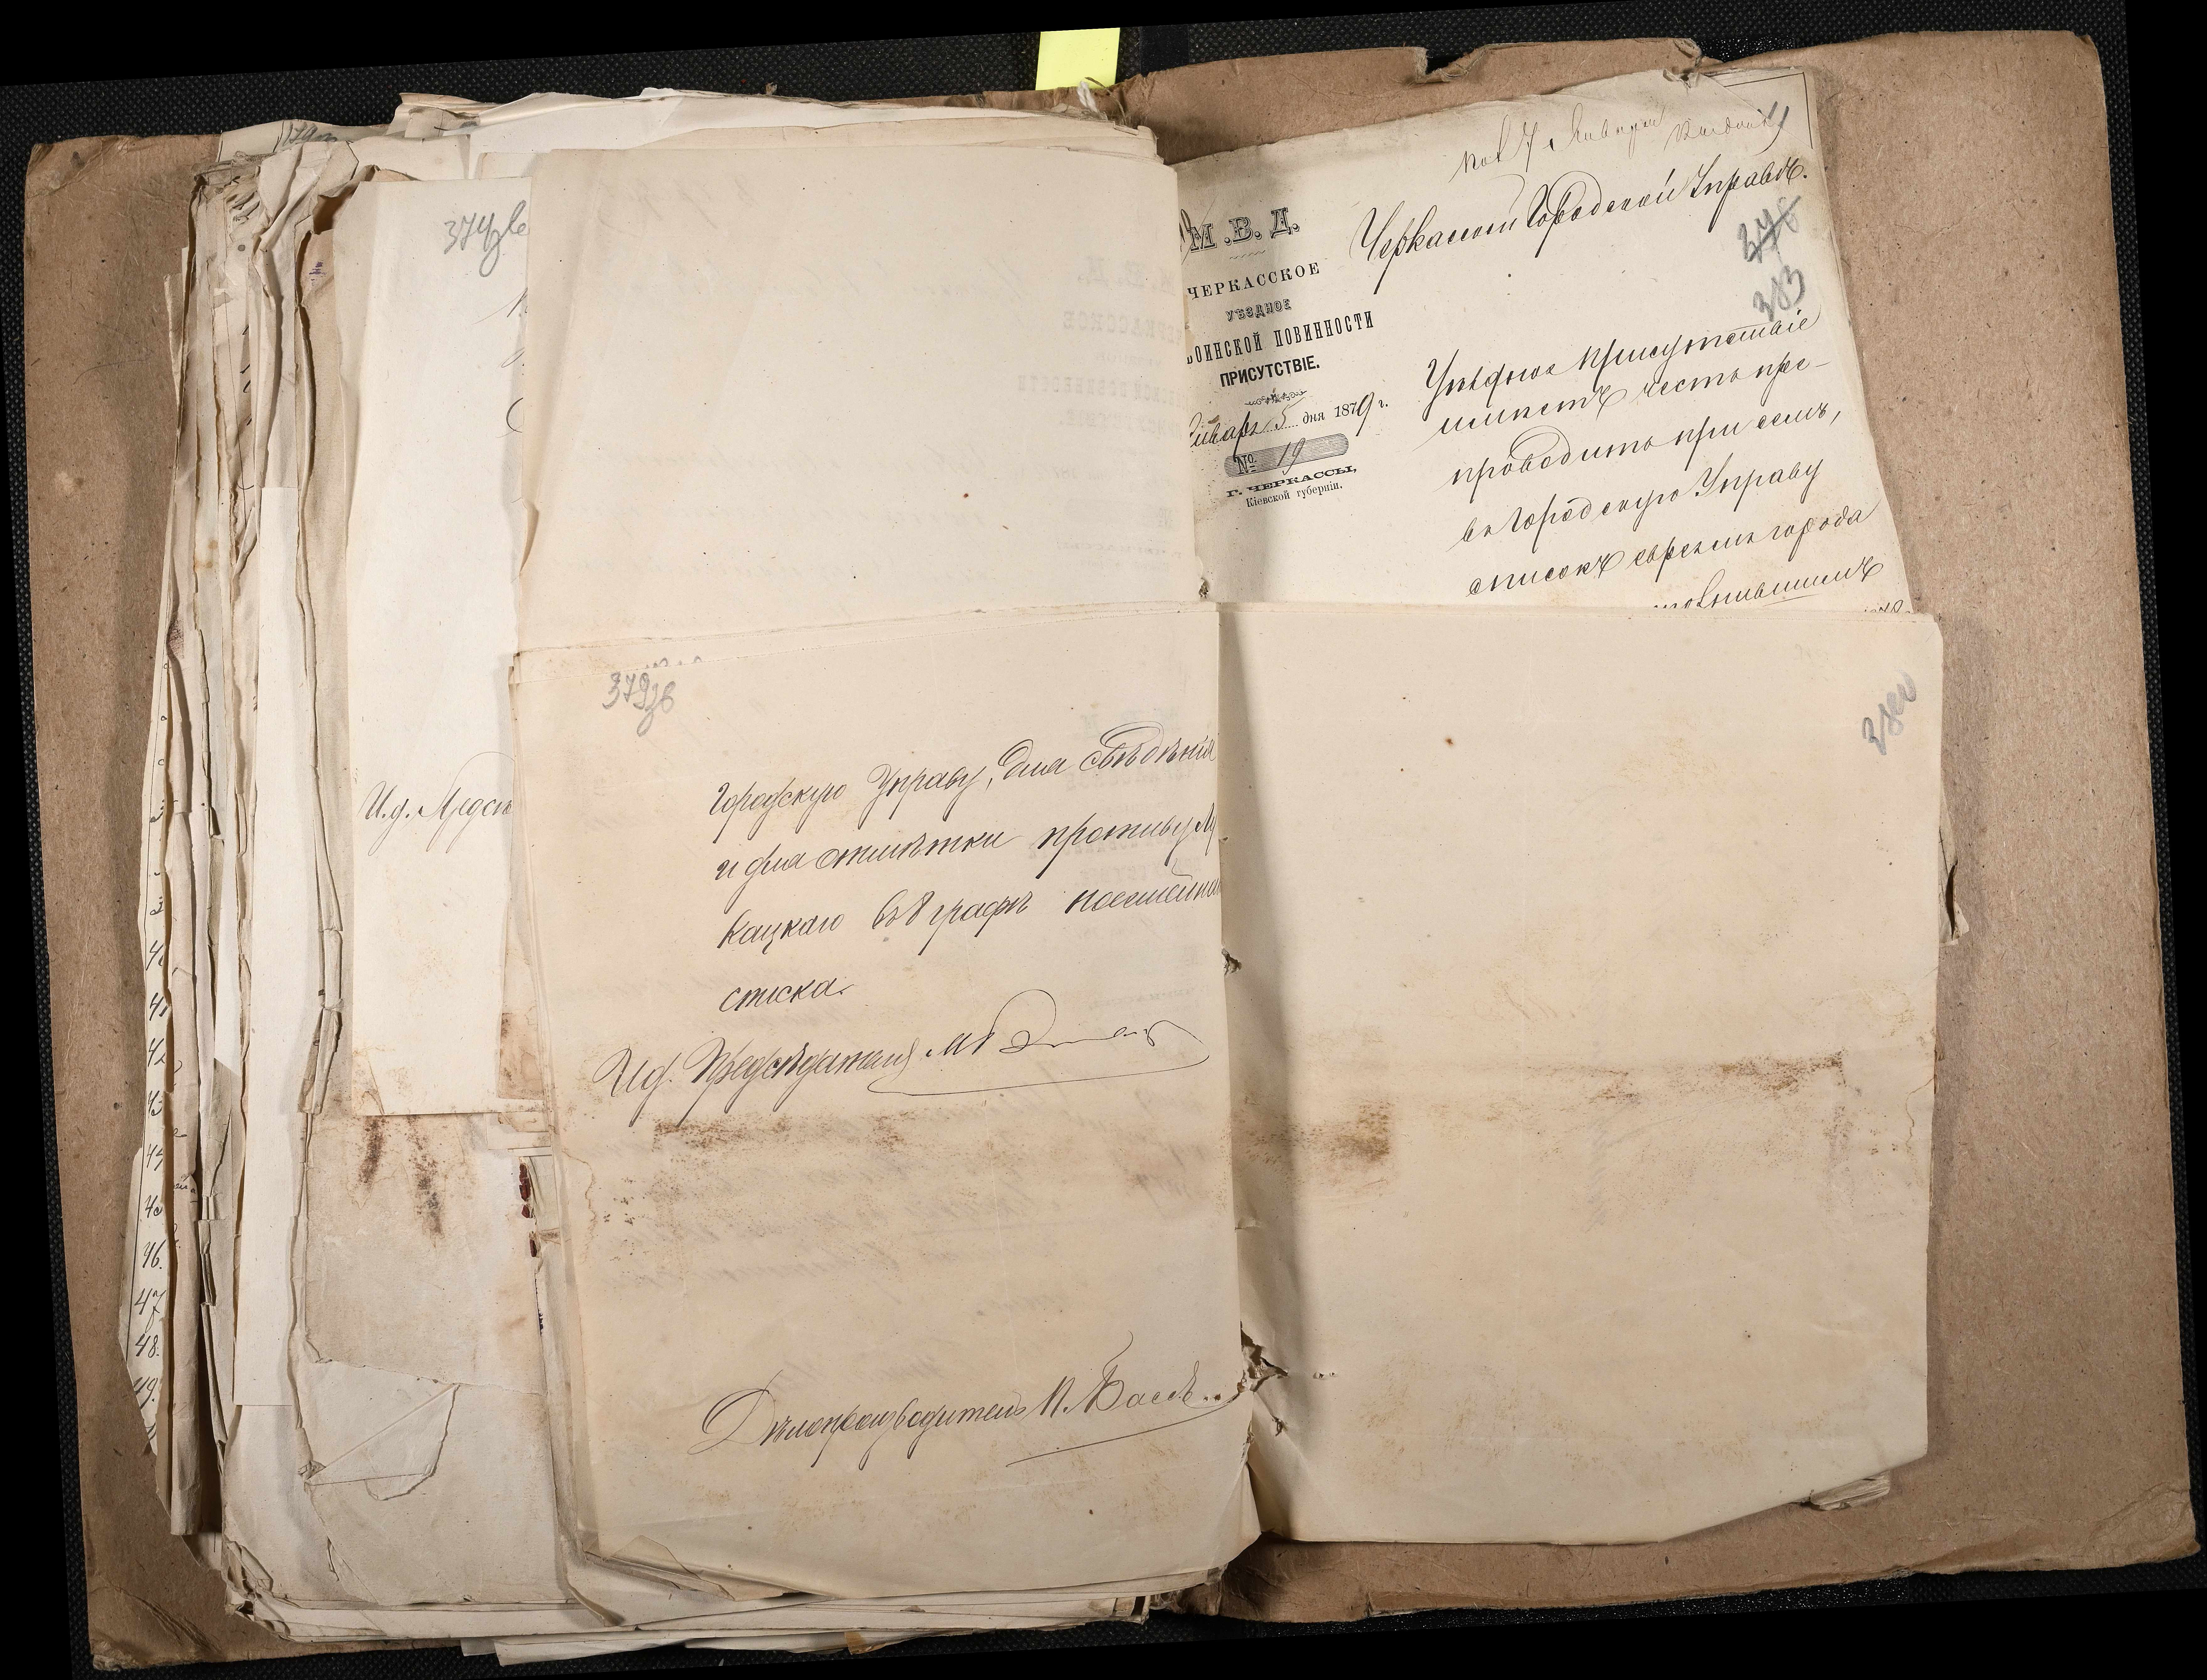 М.В.Д.
ЧЕРКАССКОЕ
УѢЗДНОЕ
ВОИНСКОЙ ПОВИННОСТИ
ПРИСУТСТВІЕ.
Января 5 дня 1879 г.
№ 19
Г. ЧЕРКАССЫ,
Кіевской губерніи.
7 Января
Черкасской Городской Управѣ.
383
Уѣздное присутствіе
имѣетъ честь пре-
проводить при семъ,
въ Городскую Управу
списокъ евреямъ города
379 зв
Городскую Управу, для свѣдѣнія
и для отмѣтки противу
Кацкаго въ 8 графѣ посемейнаго
списка.
И.д. Предсѣдателя
Дѣлопроизводитель П. Басов
380
374 зв
И.д. Предсѣ
46.
47
48.
49.